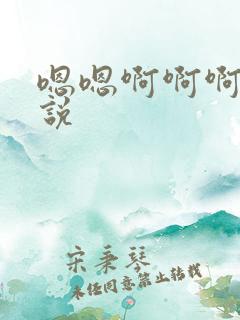 嗯嗯啊啊啊
說
宋秉琴
未经同意禁止转载